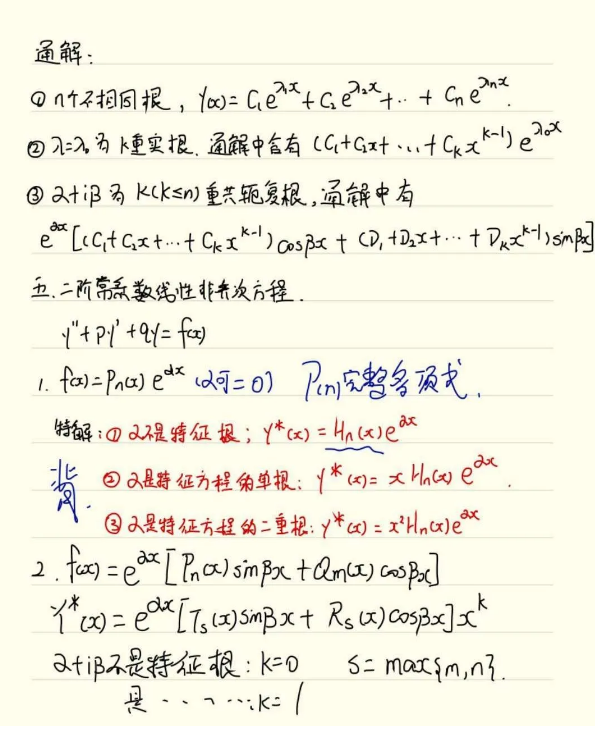 通解:
① n个不相同根, y(x)=C₁e^{λ₁x}+C₂e^{λ₂x}+…+Cₙe^{λₙx}.
② λ=λ₀为k重实根. 通解中含有 (C₁+C₂x+…+Cₖx^{k-1})e^{λ₀x}
③ α+iβ为k(k≤n)重共轭复根,通解中有
e^{αx}[(C₁+C₂x+…+Cₖx^{k-1})cosβx+(D₁+D₂x+…+Dₖx^{k-1})sinβx]
五.二阶常系数线性非齐次方程.
y''+py'+qy=f(x)
1. f(x)=Pₙ(x)e^{αx} (α可=0) P(n)完整多项式.
特解:① α不是特征根; y*(x)=Hₙ(x)e^{αx}
背 ② α是特征方程的单根: y*(x)=xHₙ(x)e^{αx}.
③ α是特征方程的二重根: y*(x)=x²Hₙ(x)e^{αx}
2. f(x)=e^{αx}[Pₙ(x)sinβx+Qm(x)cosβx]
Y*(x)=e^{αx}[Ts(x)sinβx+Rs(x)cosβx]x^k
α+iβ不是特征根:k=0 s=max{m,n}.
是……:k=1